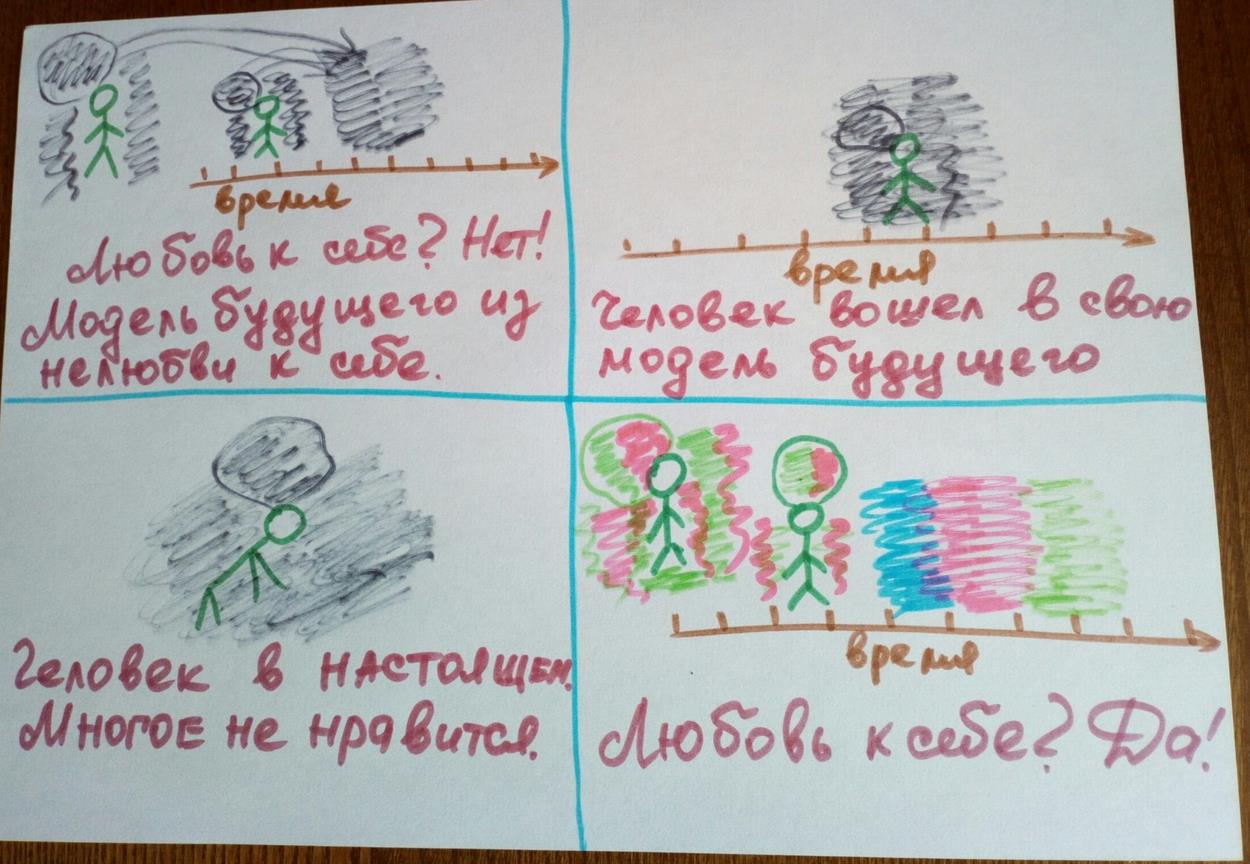 время
Любовь к себе? Нет!
Модель будущего из
нелюбви к себе.
время
Человек вошел в свою
модель будущего
Человек в настоящем.
Многое не нравится.
время
Любовь к себе? Да!